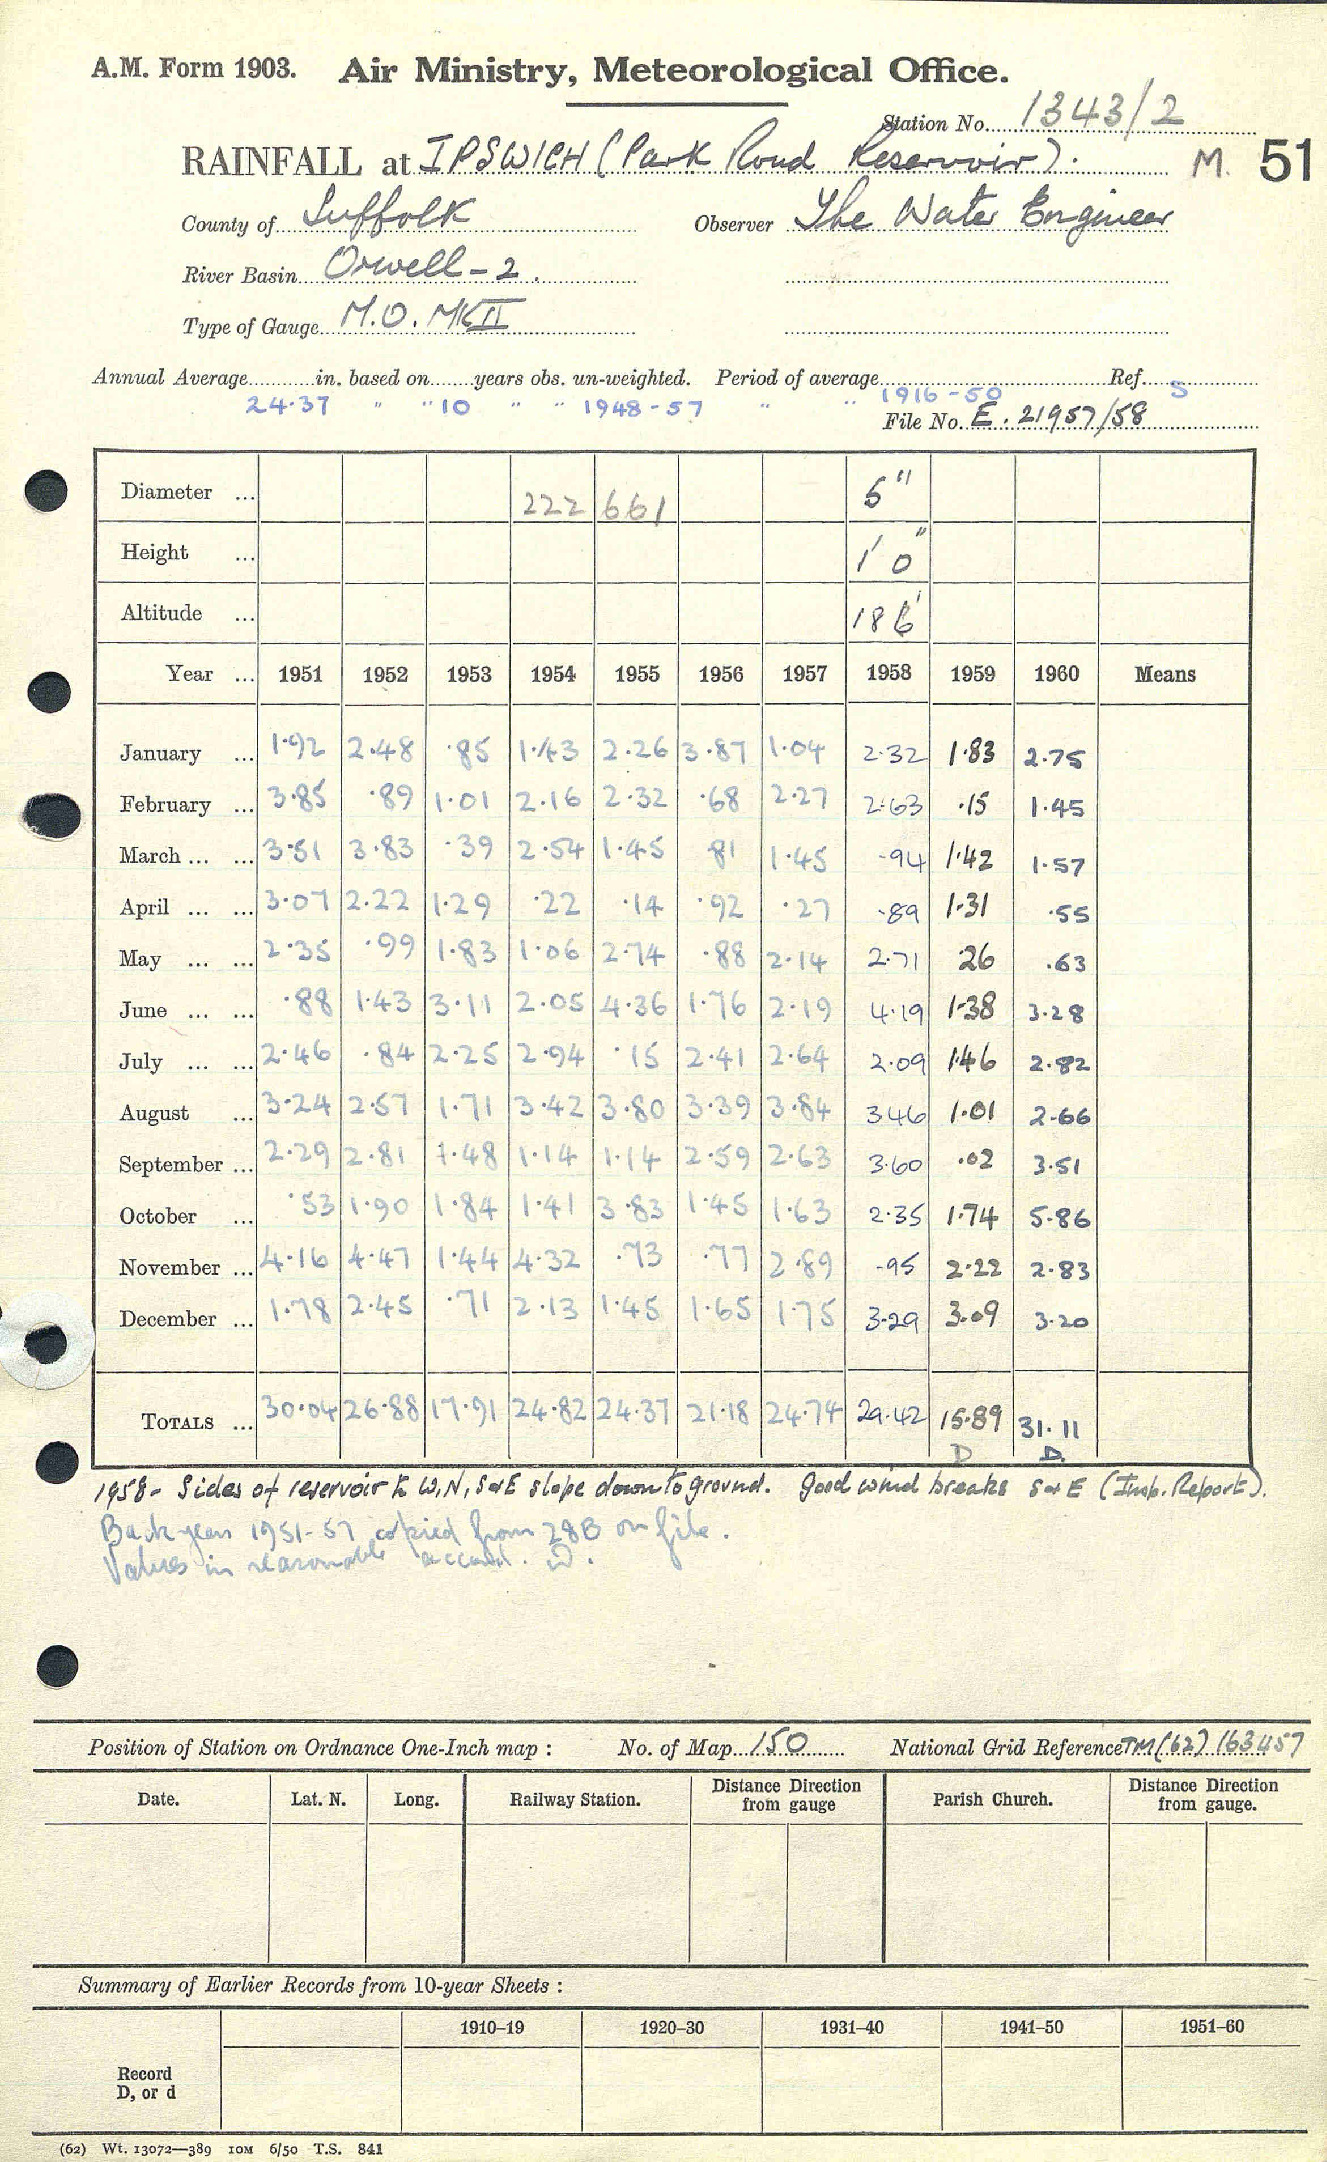 A.M. Form 1903. Air Ministry, Meteorological Office.
Station No. 1343/2
RAINFALL at IPSWICH (Park Road Reservoir). M. 51
County of Suffolk Observer The Water Engineer
River Basin Orwell-2.
Type of Gauge M.O. MKII
Annual Average in. based on years obs. un-weighted. Period of average 1916-50 Ref. S
24.37 " " 10 " " 1948-57 " "
File No. E. 21957/58
Diameter ... 222 661 5"
Height ... 1' 0"
Altitude ... 186'
Year ... 1951 1952 1953 1954 1955 1956 1957 1958 1959 1960 Means
January ... 1.92 2.48 .85 1.43 2.26 3.87 1.04 2.32 1.83 2.75
February ... 3.85 .89 1.01 2.16 2.32 .68 2.27 2.63 .15 1.45
March ... ... 3.51 3.83 .39 2.54 1.45 81 1.45 .94 1.42 1.57
April ... ... 3.07 2.22 1.29 .22 .14 .92 .27 .89 1.31 .55
May ... ... 2.35 .99 1.83 1.06 2.74 .88 2.14 2.71 26 .63
June ... ... .88 1.43 3.11 2.05 4.36 1.76 2.19 4.19 1.38 3.28
July ... ... 2.46 .84 2.25 2.94 .15 2.41 2.64 2.09 1.46 2.82
August ... 3.24 2.57 1.71 3.42 3.80 3.39 3.84 3.46 1.01 2.66
September ... 2.29 2.81 1.48 1.14 1.14 2.59 2.63 3.60 .02 3.51
October ... .53 1.90 1.84 1.41 3.83 1.45 1.63 2.35 1.74 5.86
November ... 4.16 4.47 1.44 4.32 .73 .77 2.89 .95 2.22 2.83
December ... 1.78 2.45 .71 2.13 1.45 1.65 1.75 3.29 3.09 3.20
TOTALS ... 30.04 26.88 17.91 24.82 24.37 21.18 24.74 29.42 15.89 31.11
D D
1958- Sides of reservoir to W, N, S & E slope down to ground. Good wind breaks S & E (Insp. Report).
Back years 1951-57 copied from 28B on file.
Values in reasonable accord.
Position of Station on Ordnance One-Inch map : No. of Map 150 National Grid Reference TM (62) 163457
Date. Lat. N. Long. Railway Station. Distance Direction from gauge Parish Church. Distance Direction from gauge.
Summary of Earlier Records from 10-year Sheets :
1910–19 1920–30 1931–40 1941–50 1951–60
Record
D, or d
(62) Wt. 13072—389 10M 6/50 T.S. 841